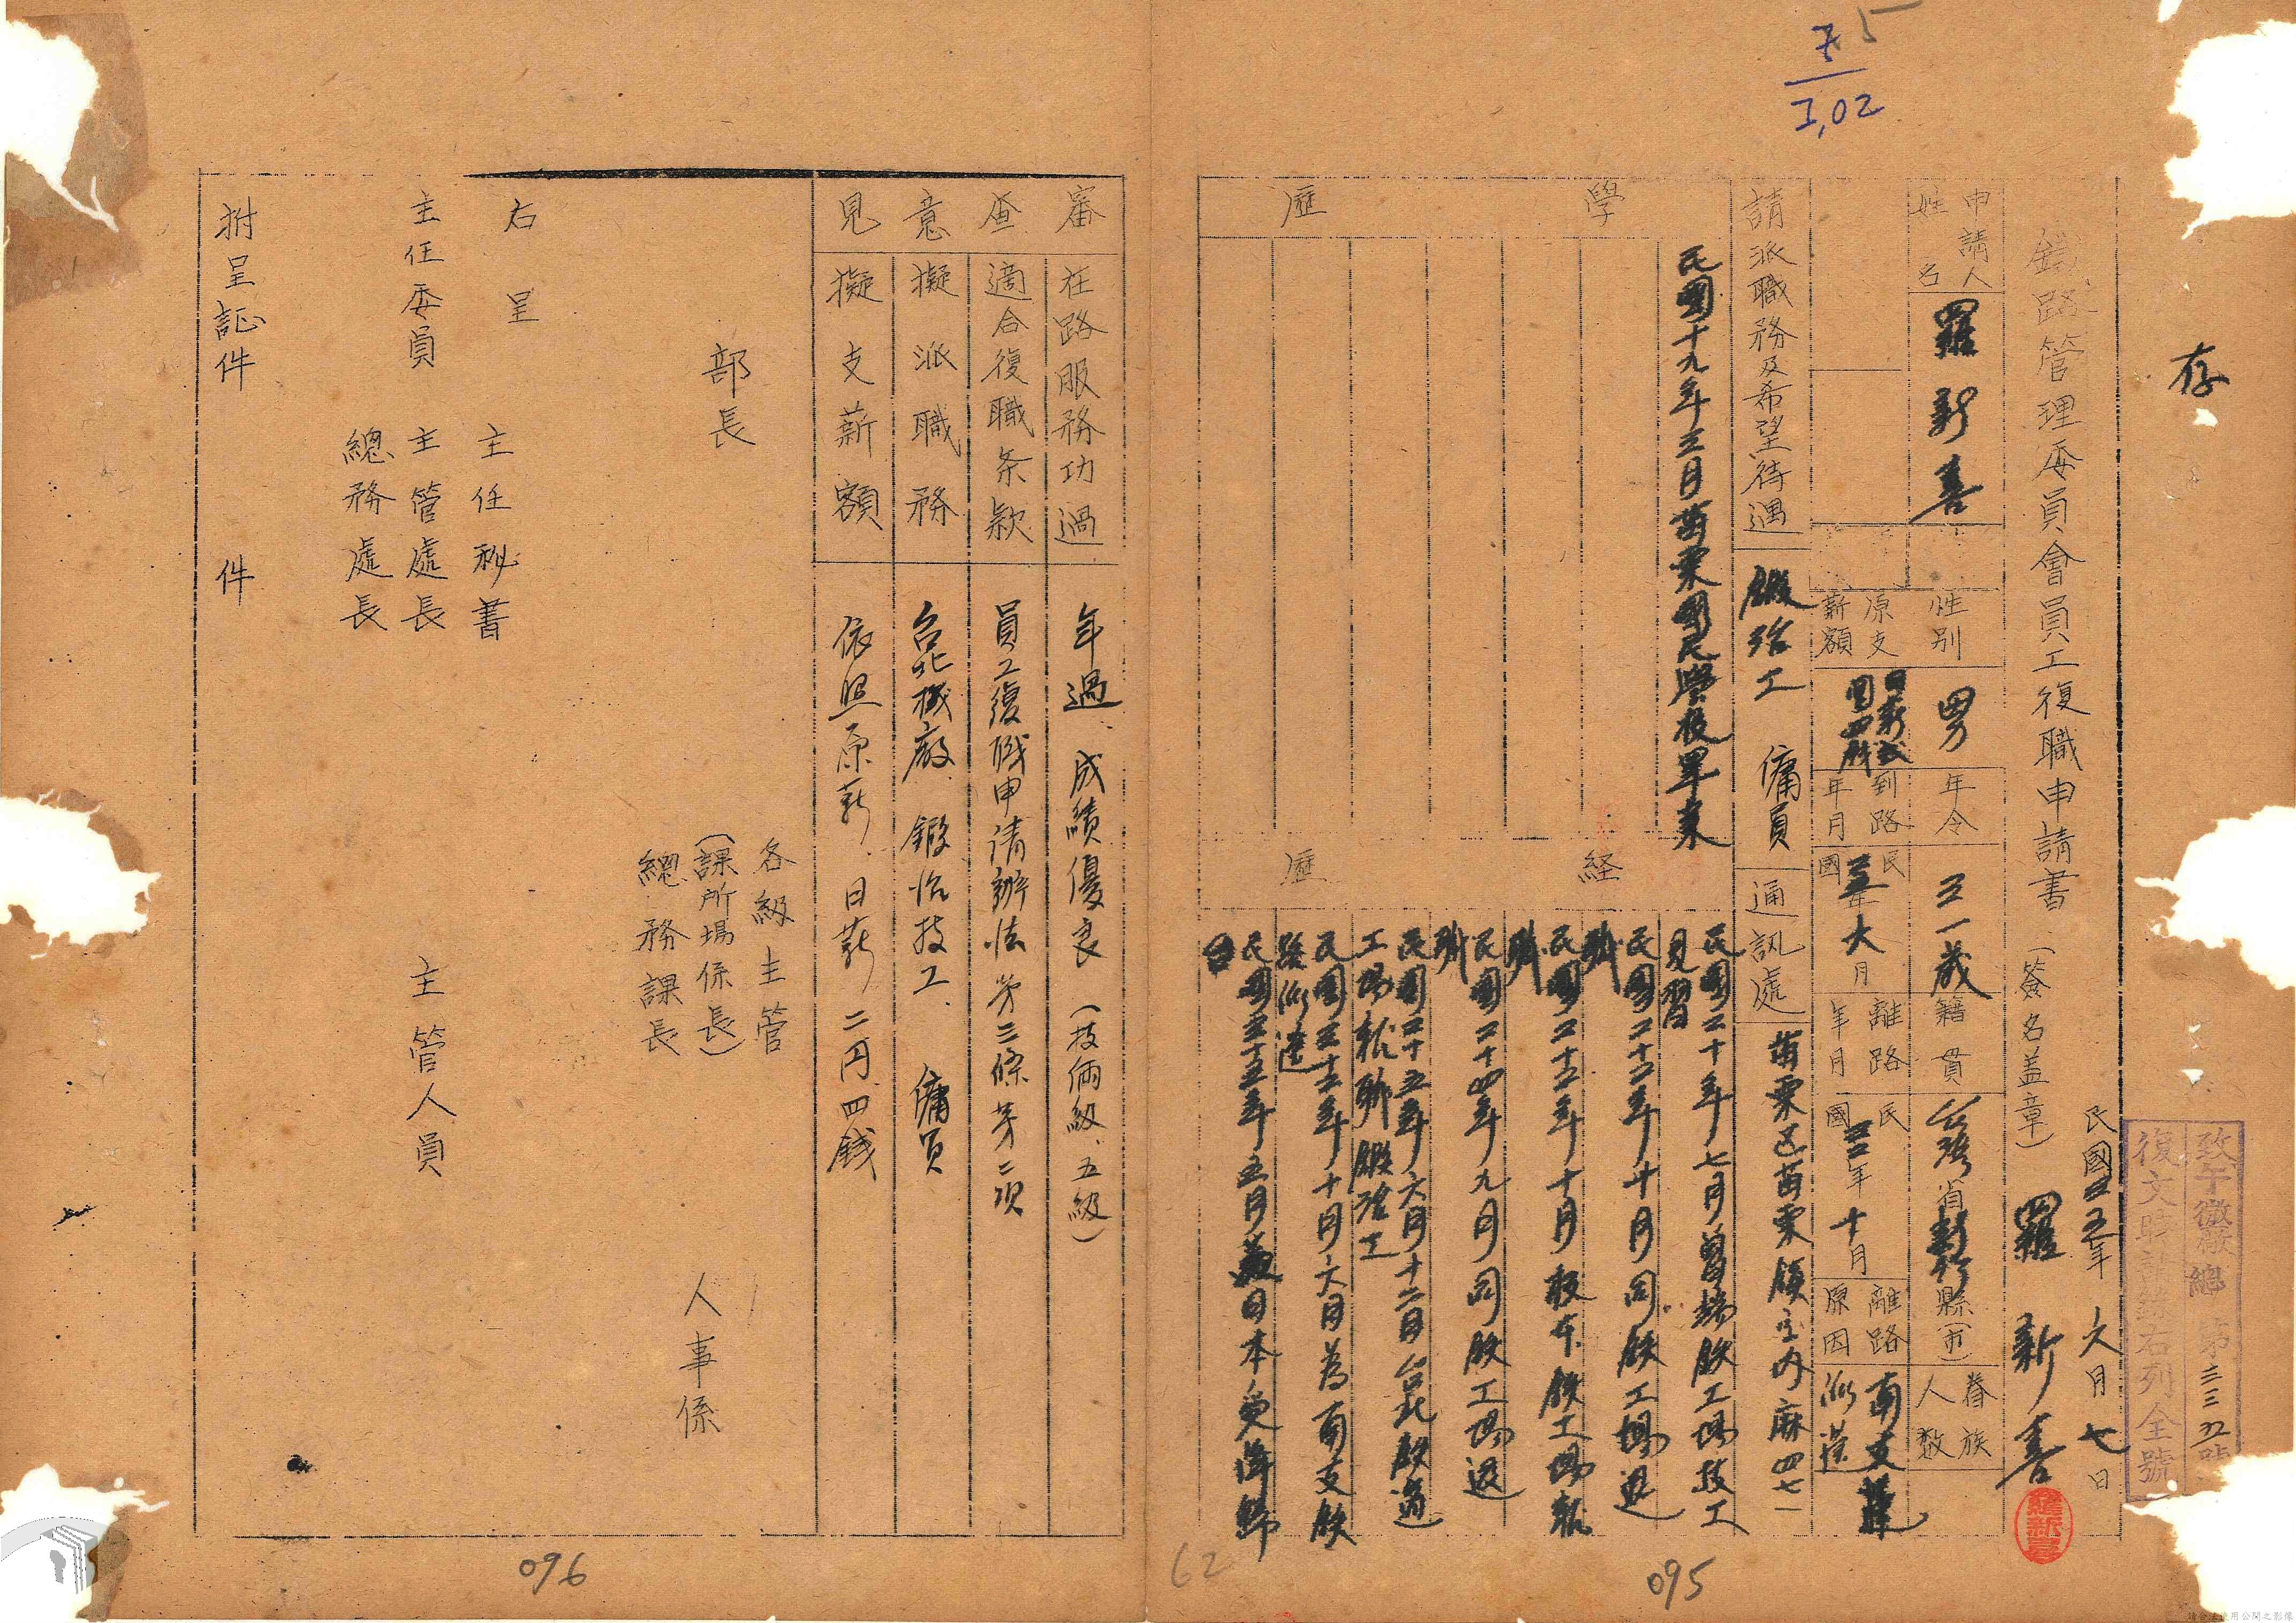 存
致午徽總第三三三
右列全號
民國三五年六月七日
鐵路管理委員會員工復職申請書（簽名蓋章）羅新喜
羅新喜
申請人姓名
羅新喜
性別
男
年令
三一歲
籍貫
台灣省新竹縣（市）
眷族人数
原支薪額
日薪弍圓四戔
到路年月
民國
年六月
離路年月
民國
年十月
離路原因
南支
派遣
請派職務及希望待遇
鍛冶工 傭員
通訊處
苗栗区苗栗鎮
內麻四七一
學歷
民國十九年三月苗栗國民學校畢業
経歷
民國二十年七月
鉄工場技工
見習
民國二十二年十月同鉄工場退
職
民國二十三年十月板本鉄工場就
職
民國二十四年九月同鉄工場退
職
民國二十五年六月十二日台北鉄道
工場就職鍛冶工
民國三十三年十月六日為南支鉄
路派遣
民國三十五年五月
日本
歸
台
審查意見
在路服務功過
年過、成績優良（技倆級、五級）
適合復職条款
員工復職申請辦法第三條第二項
擬派職務
台北機廠、鍛冶技工、傭員
擬支薪額
依照原薪、日薪二円四錢
部長
各級主管
（課所場係長）
總務課長
人事係
右呈
主任秘書
主任委員 主管處長
總務處長
主管人員
拊呈証件 件
75
1,02
62
095
096